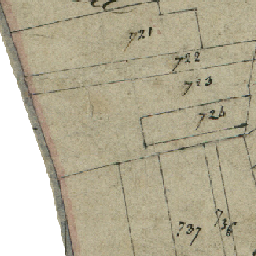 721
722
723
726
737
736